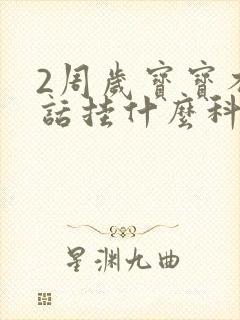 2周歲寶寶不
話挂什麼科
星渊九曲